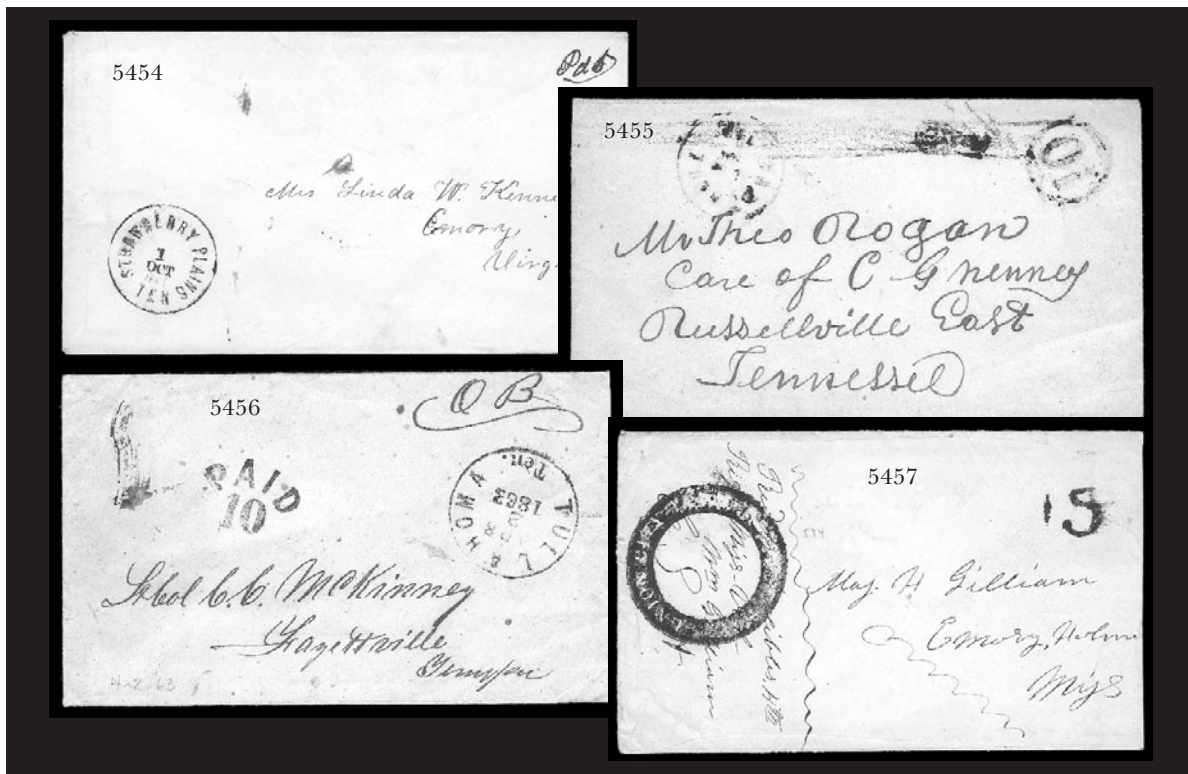 5454
Pd 5
Mrs Linda W. Kenne
Emory
Virg
STRAWBERRY PLAINS
1
OCT
TEN
5455
10
Mr Theo Rogan
Care of C G Nenney
Russellville East
Tennessee
5456
O B
PAID
10
TULLAHOMA
Ten.
1863
Lt Col C. C. McKinney
Fayettville
Tennessee
4-2-63
5457
15
UNION CITY
Maj. H Gilliam
Emory, Holm
Miss